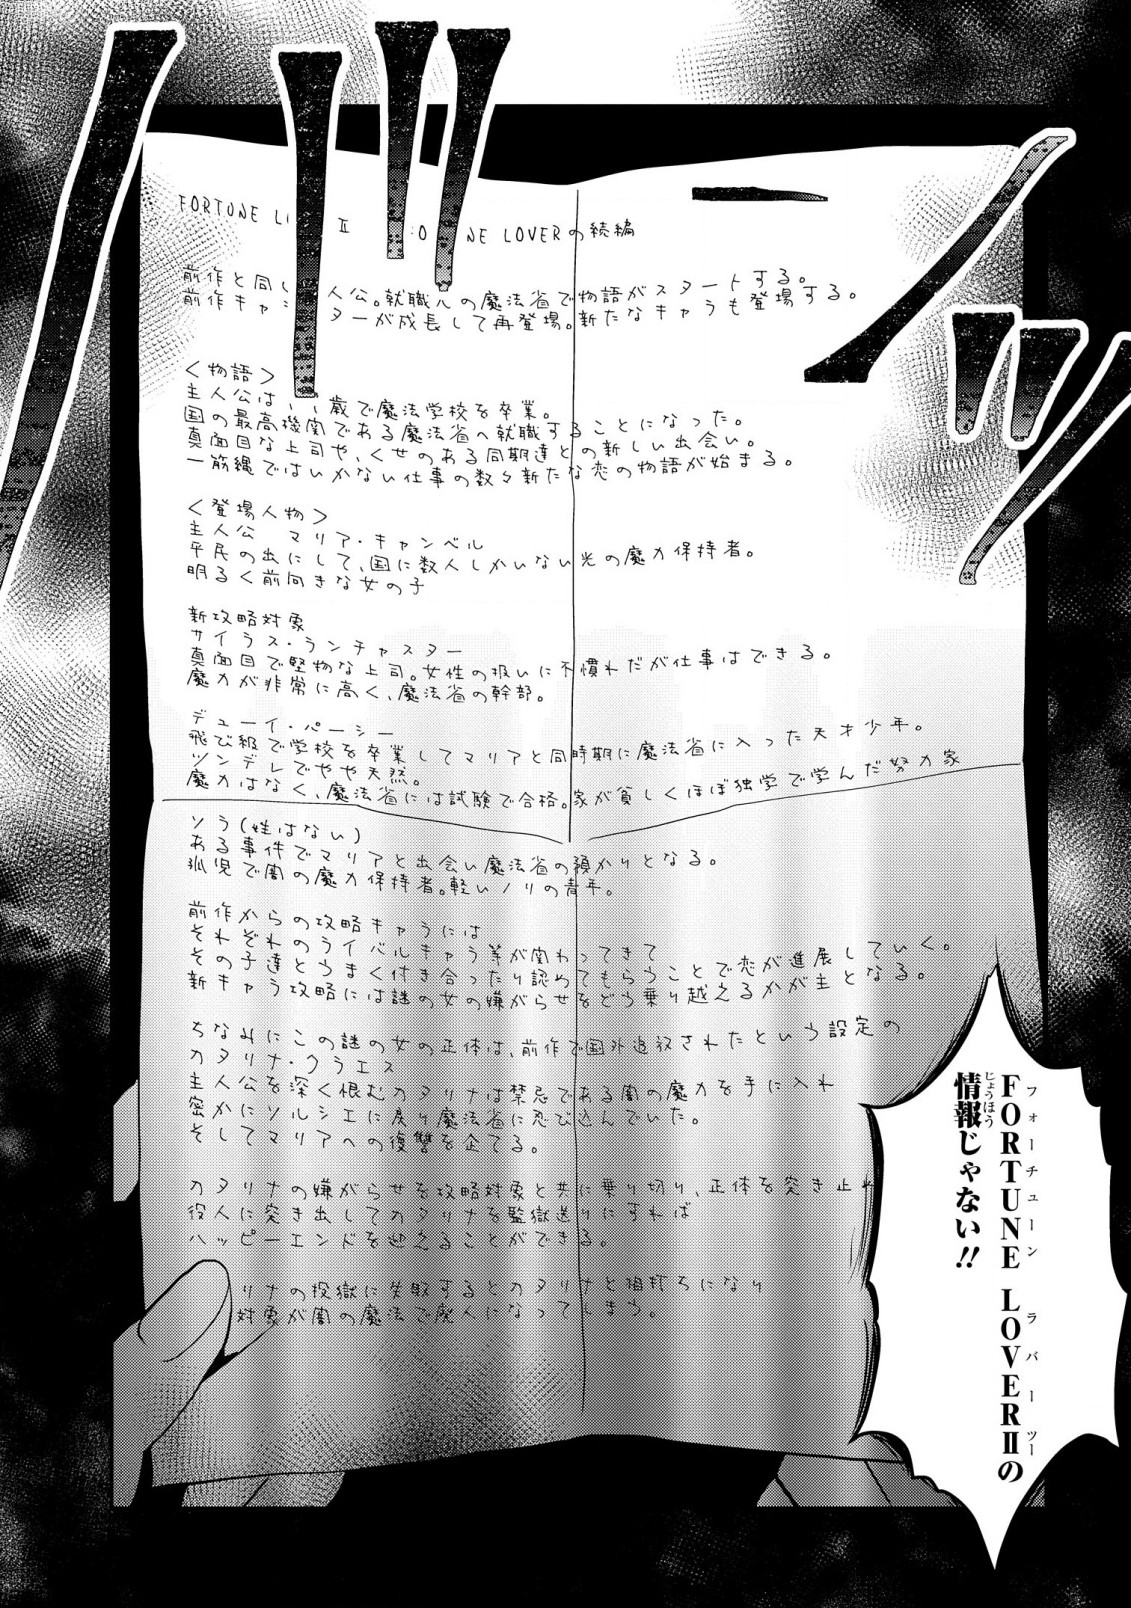 FORTUNE L Ⅱ O NE LOVERの続編
前作と同じ 人公。就職先の魔法省で物語がスタートする。
前作キャ ターが成長して再登場。新たなキャラも登場する。
＜物語＞
主人公は 歳で魔法学校を卒業。
国の最高機関である魔法省へ就職することになった。
真面目な上司や、くせのある同期達との新しい出会い。
一筋縄ではいかない仕事の数々新たな恋の物語が始まる。
＜登場人物＞
主人公 マリア・キャンベル
平民の出にして、国に数人しかいない光の魔力保持者。
明るく前向きな女の子
新攻略対象
サイラス・ランチャスター
真面目で堅物な上司。女性の扱いに不慣れだが仕事はできる。
魔力が非常に高く、魔法省の幹部。
デューイ・パーシー
飛び級で学校を卒業してマリアと同時期に魔法省に入った天才少年。
ツンデレでやや天然。
魔力はなく、魔法省には試験で合格。家が貧しくほぼ独学で学んだ努力家
ソラ(姓はない)
ある事件でマリアと出会い魔法省の預かりとなる。
孤児で闇の魔力保持者。軽いノリの青年。
前作からの攻略キャラには
それぞれのライバルキャラ等が関わってきて
その子達とうまく付き合ったり認めてもらうことで恋が進展していく。
新キャラ攻略には謎の女の嫌がらせをどう乗り越えるかが主となる。
ちなみにこの謎の女の正体は、前作で国外追放されたという設定の
カタリナ・クラエス
主人公を深く恨むカタリナは禁忌である闇の魔力を手に入れ
密かにソルシエに戻り魔法省に忍び込んでいた。
そしてマリアへの復讐を企てる。
カタリナの嫌がらせを攻略対象と共に乗り切り、正体を突き止め
役人に突き出してカタリナを監獄送りにすれば
ハッピーエンドを迎えることができる。
リナの投獄に失敗するとカタリナと相打ちになり
対象が闇の魔法で廃人になってしまう。
FORTUNE LOVERⅡの
フォーチューン ラバーツー
情報じゃない!!
じょうほう
バッ
バッ